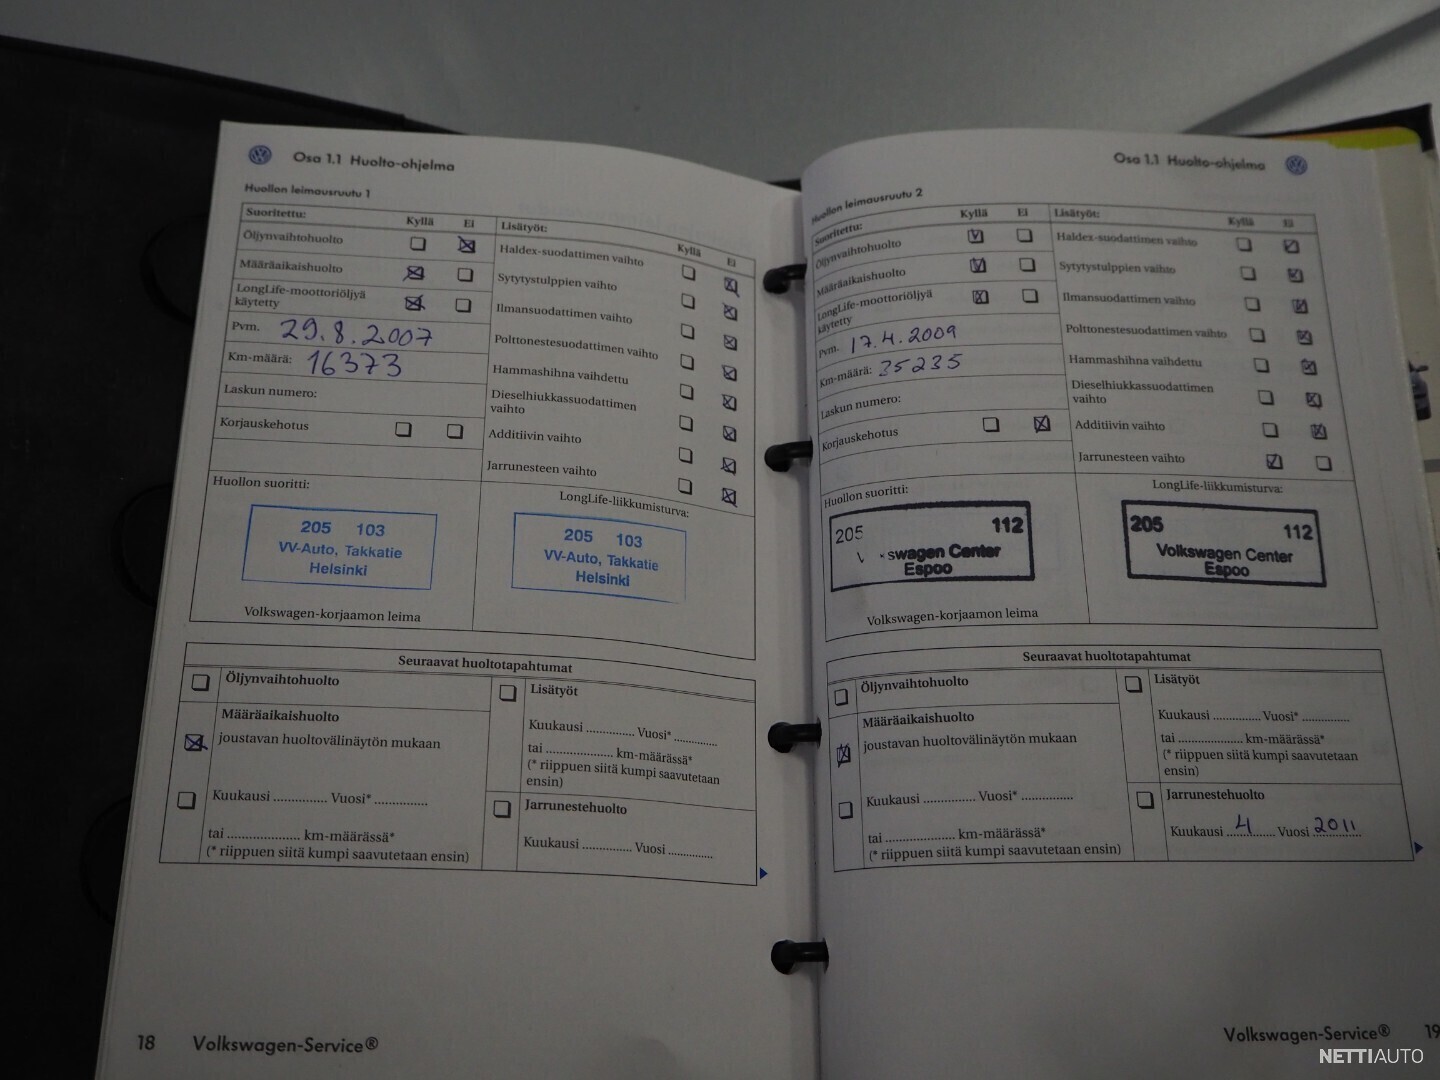 Osa 1.1 Huolto-ohjelma
Huollon leimausruutu 1
Suoritettu: Kyllä Ei
Öljynvaihtohuolto
Määräaikaishuolto
LongLife-moottoriöljyä
käytetty
Pvm. 29.8.2007
Km-määrä: 16373
Laskun numero:
Korjauskehotus
Lisätyöt: Kyllä Ei
Haldex-suodattimen vaihto
Sytytystulppien vaihto
Ilmansuodattimen vaihto
Polttonestesuodattimen vaihto
Hammashihna vaihdettu
Dieselhiukkassuodattimen
vaihto
Additiivin vaihto
Jarrunesteen vaihto
Huollon suoritti:
205 103
VV-Auto, Takkatie
Helsinki
Volkswagen-korjaamon leima
LongLife-liikkumisturva:
205 103
VV-Auto, Takkatie
Helsinki
Seuraavat huoltotapahtumat
Öljynvaihtohuolto
Määräaikaishuolto
joustavan huoltovälinäytön mukaan
Kuukausi .............. Vuosi* ..............
tai .................... km-määrässä*
(* riippuen siitä kumpi saavutetaan ensin)
Lisätyöt
Kuukausi .............. Vuosi* ............
tai .................. km-määrässä*
(* riippuen siitä kumpi saavutetaan
ensin)
Jarrunestehuolto
Kuukausi .............. Vuosi ............
18 Volkswagen-Service®
Osa 1.1 Huolto-ohjelma
Huollon leimausruutu 2
Suoritettu: Kyllä Ei
Öljynvaihtohuolto
Määräaikaishuolto
LongLife-moottoriöljyä
käytetty
Pvm. 17.4.2009
Km-määrä: 35235
Laskun numero:
Korjauskehotus
Lisätyöt: Kyllä Ei
Haldex-suodattimen vaihto
Sytytystulppien vaihto
Ilmansuodattimen vaihto
Polttonestesuodattimen vaihto
Hammashihna vaihdettu
Dieselhiukkassuodattimen
vaihto
Additiivin vaihto
Jarrunesteen vaihto
Huollon suoritti:
205 112
V swagen Center
Espoo
Volkswagen-korjaamon leima
LongLife-liikkumisturva:
205 112
Volkswagen Center
Espoo
Seuraavat huoltotapahtumat
Öljynvaihtohuolto
Määräaikaishuolto
joustavan huoltovälinäytön mukaan
Kuukausi .............. Vuosi* ..............
tai .................... km-määrässä*
(* riippuen siitä kumpi saavutetaan ensin)
Lisätyöt
Kuukausi ............. Vuosi* .............
tai .................. km-määrässä*
(* riippuen siitä kumpi saavutetaan
ensin)
Jarrunestehuolto
Kuukausi 4 Vuosi 2011
Volkswagen-Service® 19
NETTIAUTO